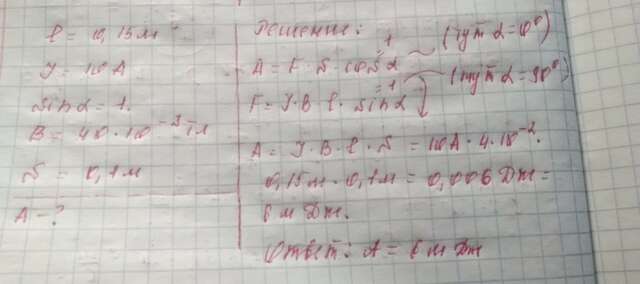 ℓ = 0,15 м
J = 10 A
sin α = 1.
B = 40 · 10⁻³ Тл
S = 0,1 м
A - ?
Решение:
A = F · S · cos α = 1 (тут α = 0°)
F = J · B · ℓ · sin α = 1 (тут α = 90°)
A = J · B · ℓ · S = 10A · 4 · 10⁻² ·
0,15 м · 0,1 м = 0,006 Дж =
6 м Дж.
Ответ: A = 6 м Дж